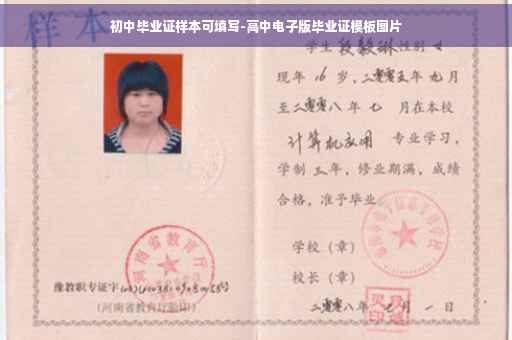 初中毕业证样本可填写-高中电子版毕业证模板图片
样本
学生 段毅琳 性别 女
现年 16 岁，二零零五年 九月
至二零零八年 七 月在本校
计算机应用 专业学习，
学制 三 年，修业期满，成绩
合格，准予毕业
学校（章）
校长（章）
二零零八年 七 月 一 日
河南省教育厅
豫教职专证字
(河南省教育厅验印)